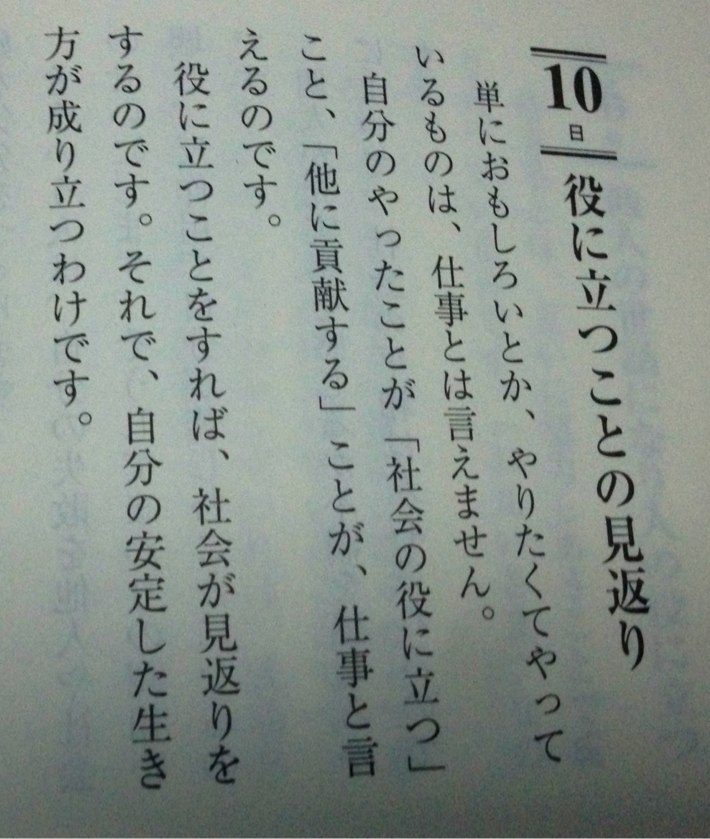 10日
役に立つことの見返り
単におもしろいとか、やりたくてやって
いるものは、仕事とは言えません。
自分のやったことが「社会の役に立つ」
こと、「他に貢献する」ことが、仕事と言
えるのです。
役に立つことをすれば、社会が見返りを
するのです。それで、自分の安定した生き
方が成り立つわけです。